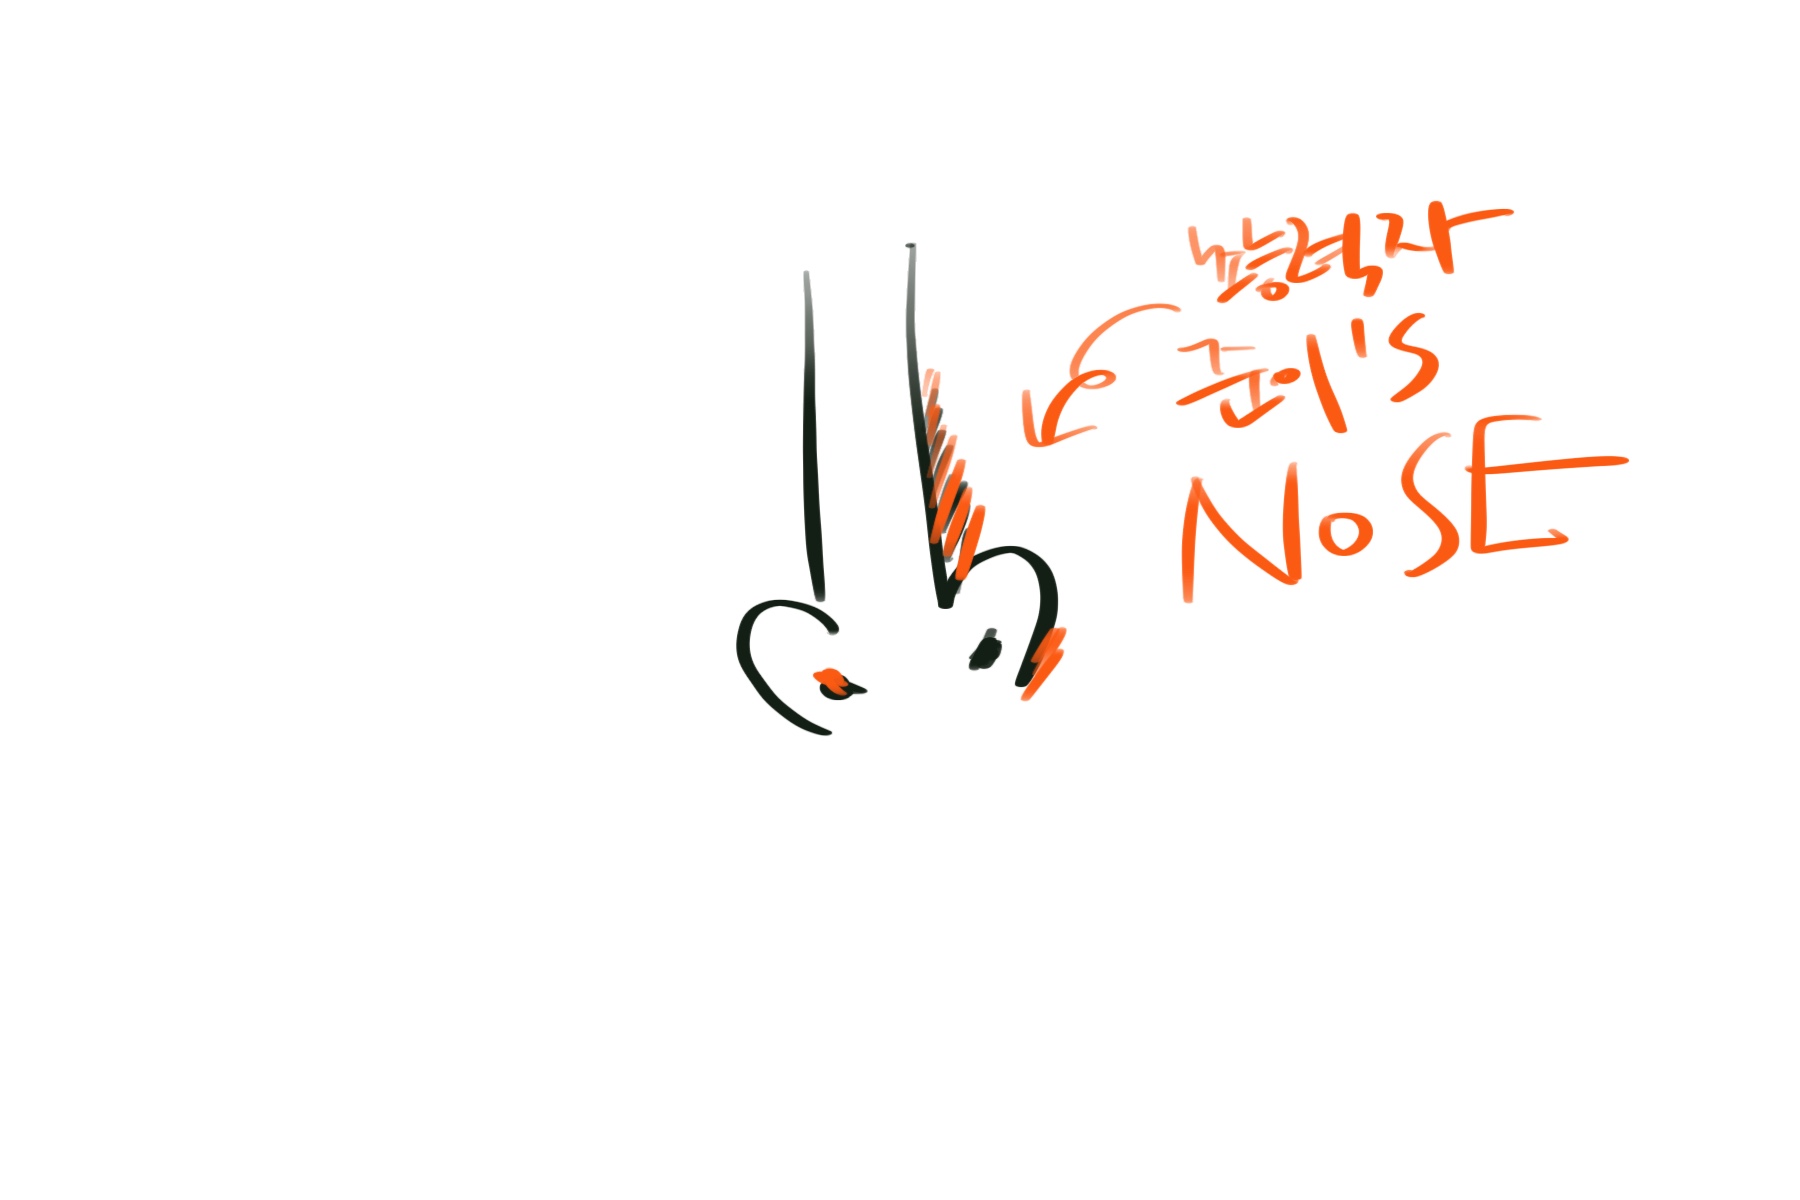 능력자
준이's
NOSE